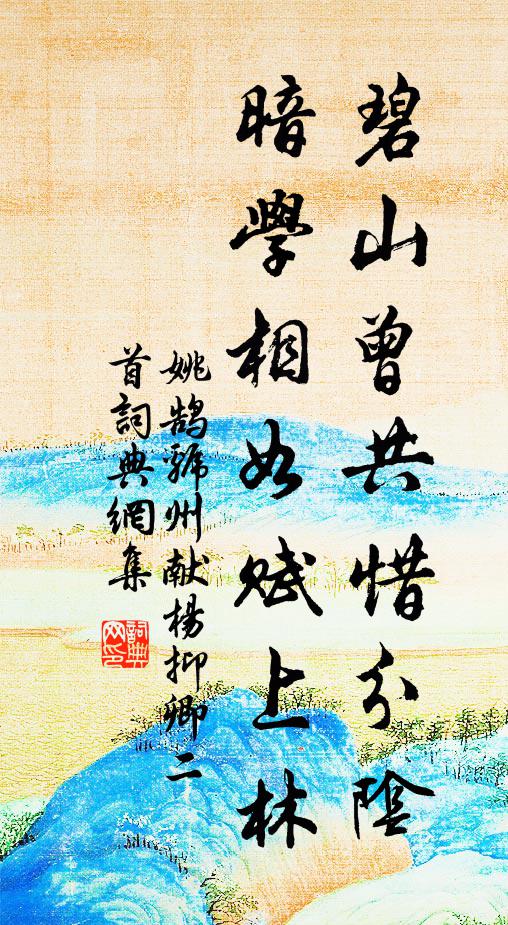 碧山曾共惜分陰
暗學相如賦上林
姚鵠虢州献楊抑卿二
首詞典網集
詞典网印